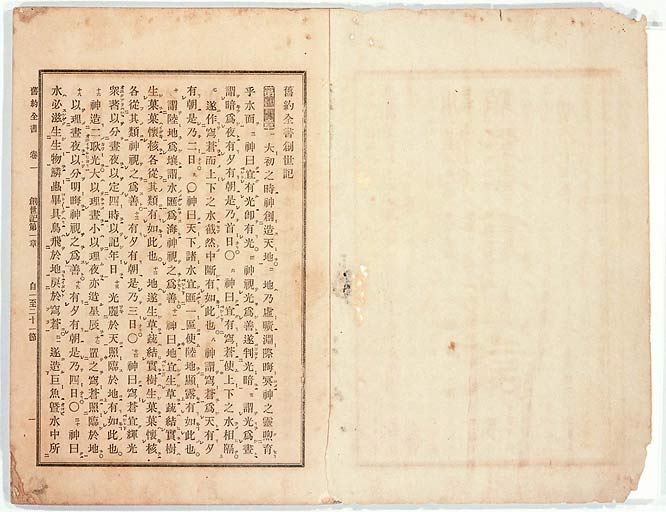 舊約全書創世記
太初之時神創造天地。地乃虛曠淵際晦冥神之靈煦育
乎水面。神曰宜有光卽有光。神視光爲善遂判光暗。謂光爲晝
謂暗爲夜有夕有朝是乃首日〇神曰宜有穹蒼使上下之水相隔
遂作穹蒼而上下之水截然中斷有如此也。神謂穹蒼爲天有夕
有朝是乃二日。〇神曰天下諸水宜匯一區使陸地顯露有如此也
謂陸地爲壤謂水匯爲海神視之爲善。神曰地宜生草蔬結實樹
生菓菓懷核各從其類有如此也。地遂生草蔬結實樹生菓菓懷核
各從其類神視之爲善。有夕有朝是乃三日〇神曰穹蒼宜輝光
衆著以分晝夜以定四時以記年日。光麗於天照臨於地有如此也
神造二耿光大以理晝小以理夜亦造星辰。置之穹蒼照臨於地
以理晝夜以分明晦神視之爲善。有夕有朝是乃四日〇神曰
水必滋生生物鱗蟲畢具鳥飛於地戾於穹蒼。遂造巨魚曁水中所
舊約全書 卷一 創世記第一章 自一至二十一節 一